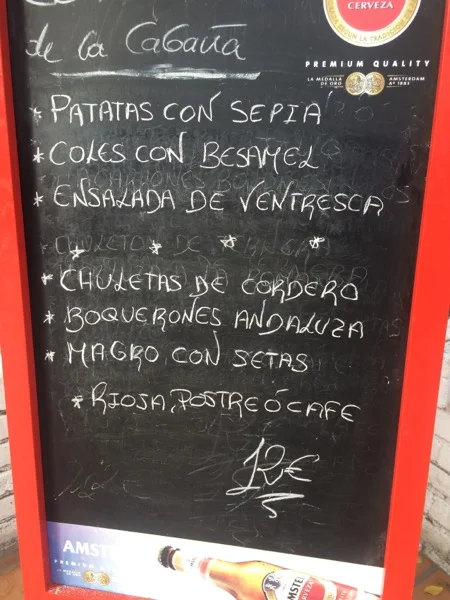 CERVEZA
PREMIUM QUALITY
LA MEDALLA DE ORO AMSTERDAM Aº 1883
de la Cabaña
* PATATAS CON SEPIA
* COLES CON BESAMEL
* ENSALADA DE VENTRESCA
* CHULETAS DE CORDERO
* BOQUERONES ANDALUZA
* MAGRO CON SETAS
* RIOJA, POSTRE Ó CAFE
12€
AMST
PREMIUM